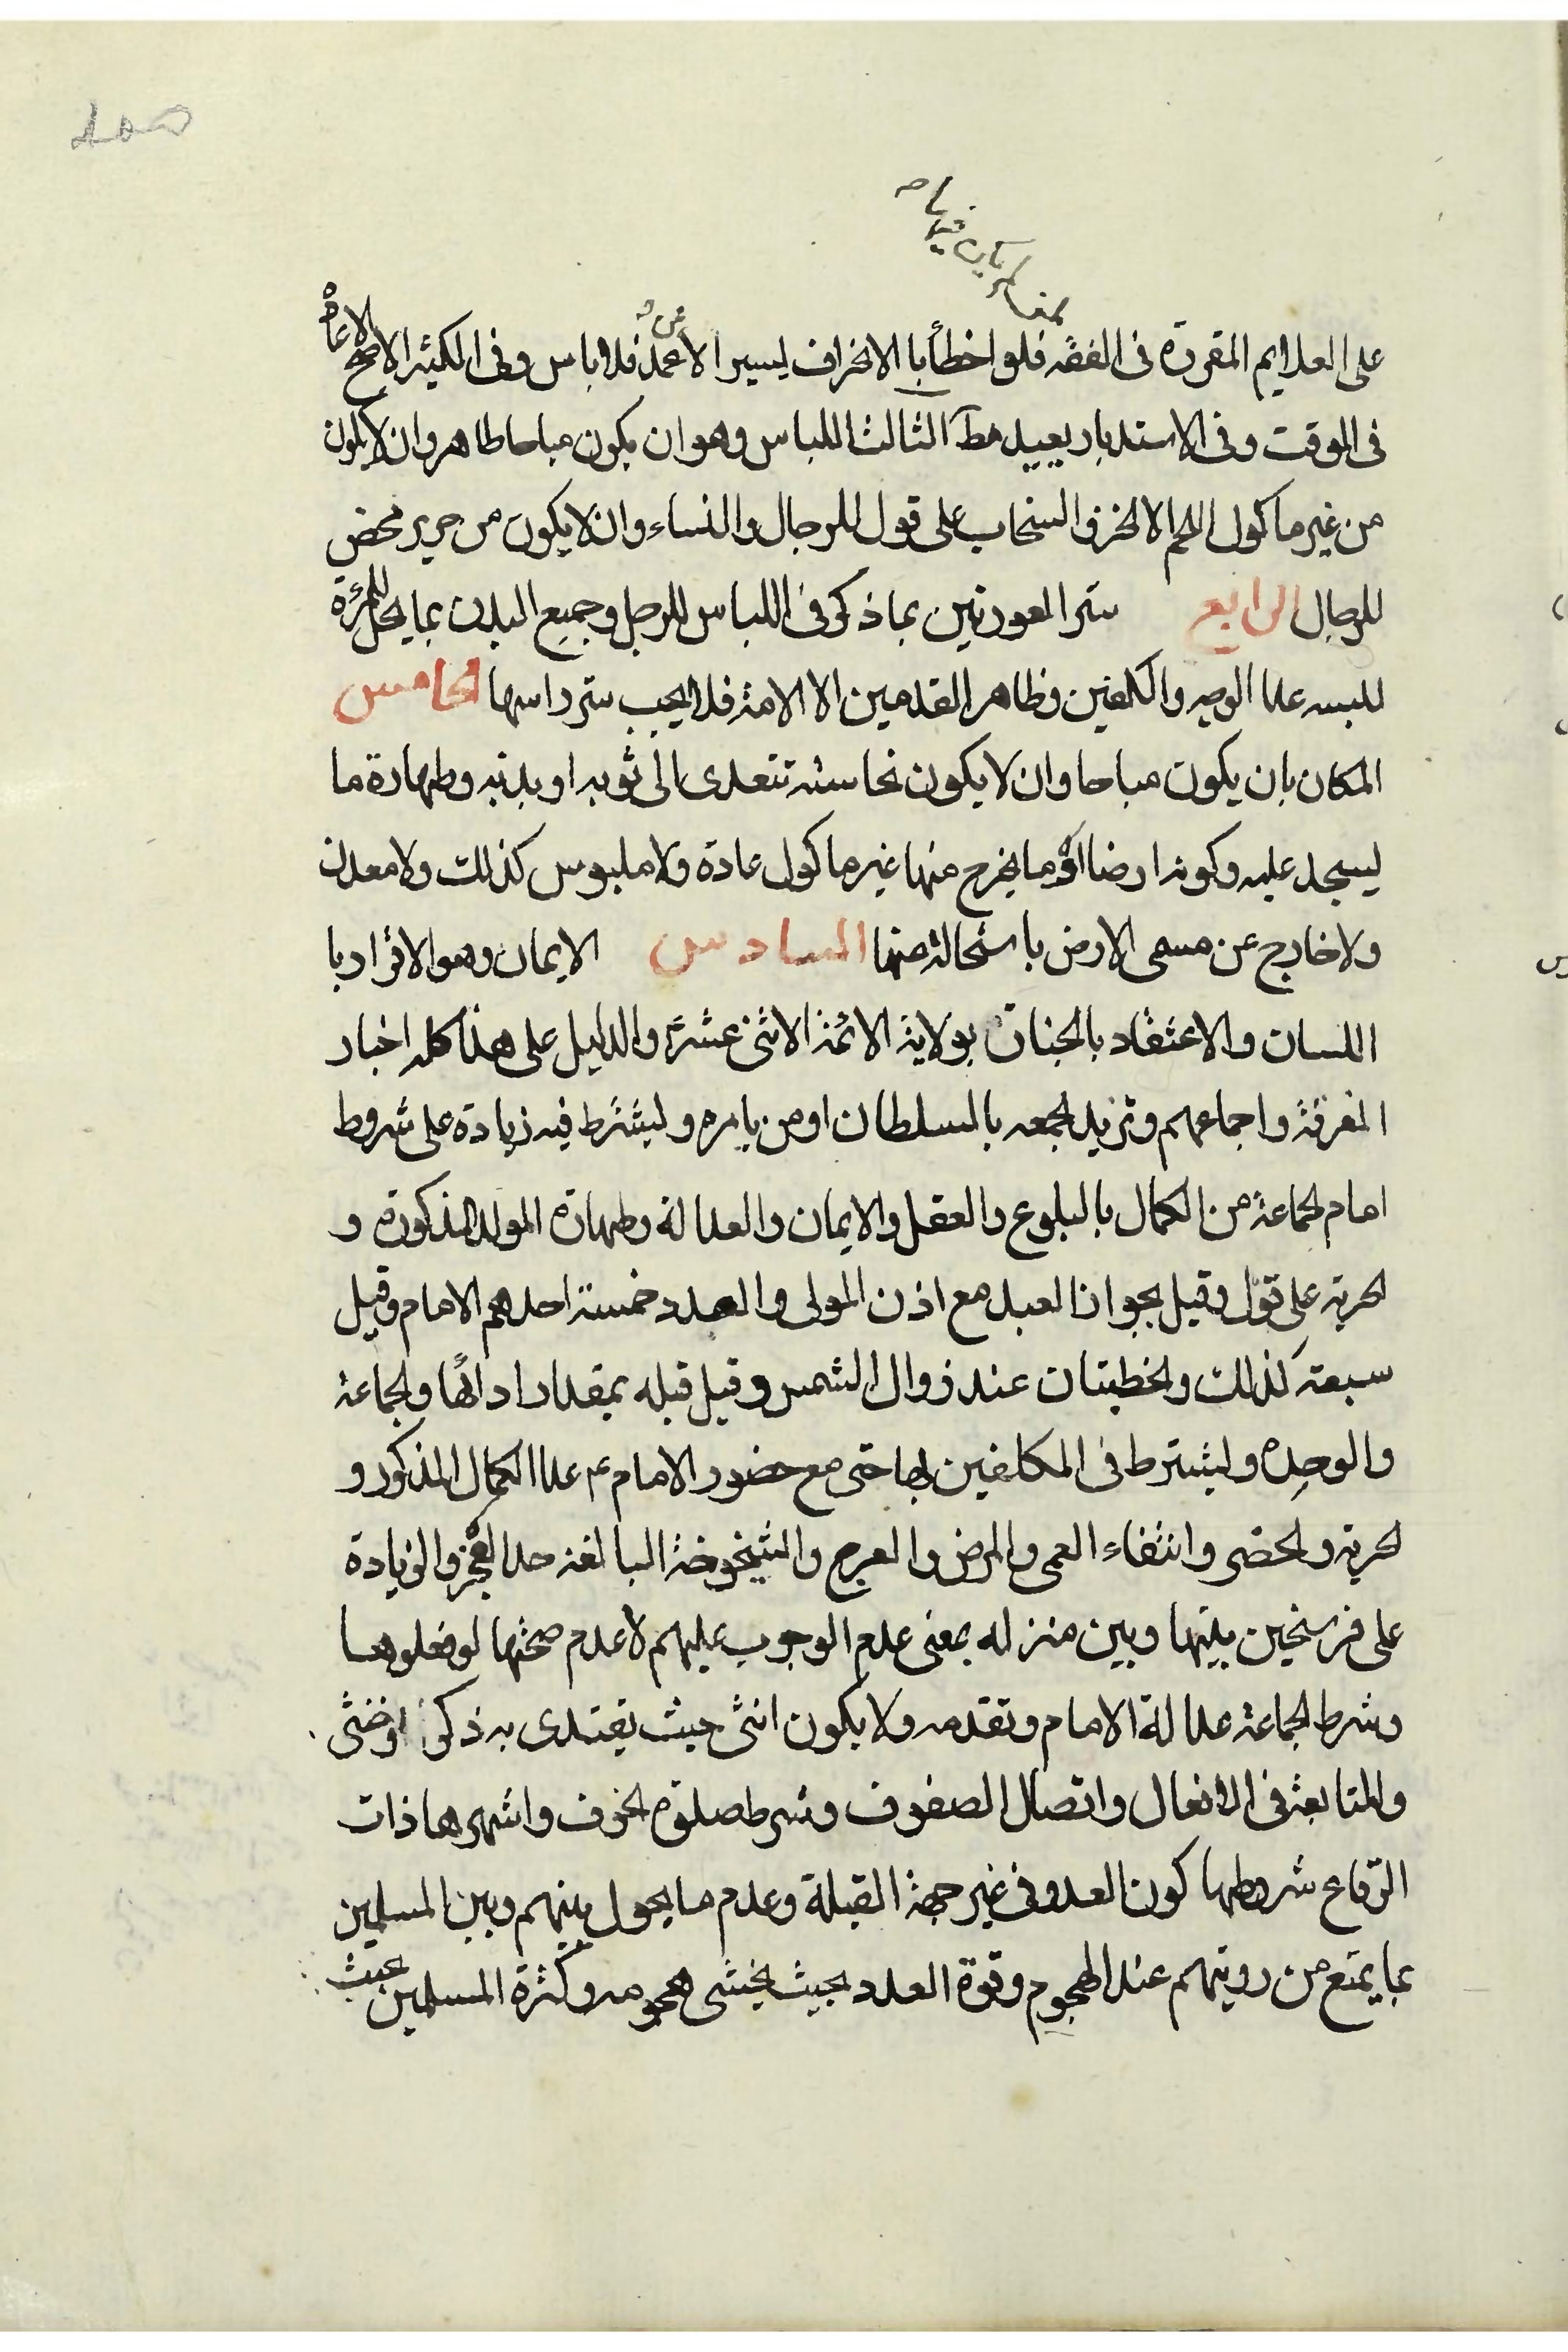 على العلايم المقررة فى الفقه فلو اخطأ با الانحراف ليسيرا لا عمد فلا باس وفى الكثير الاصح الاعادة
فى الوقت وفى الاستدبار يعيد مطـ الثالث اللباس وهو ان يكون مباحا طاهر وان لا يكون
من غير ماكول اللحم الا الخز والسنجاب على قول للرجال والنساء وان لا يكون من حرير محض
للرجال الرابع ستر العورتين بما ذكر فى اللباس للرجل وجميع البدن بما يحل للمرئة
للبسه عدا الوجه والكفين وظاهر القدمين الا الامة فلا يجب ستر راسها الخامس
المكان بان يكون مباحا وان لا يكون نجاسته تتعدى الى ثوبه او بدنه وطهارة ما
ليسجد عليه وكونه ارضا او ما يخرج منها غير ماكول عادة ولا ملبوس كذلك ولا معدن
ولا خارج عن مسمى الارض باستحالة منها السادس الايمان وهو الاقرار با
اللسان والاعتقاد بالجنان بولاية الائمة الاثنى عشر والدليل على هذا كله اخبار
الفرقة واجماعهم وتزيد الجمعه بالسلطان او من يامره وليشترط فيه زيادة على شروط
امام الجماعة من الكمال بالبلوغ والعقل والايمان والعدالة وطهارة المولد المذكورة و
الحرية على قول وقيل بجواز العبد مع اذن المولى والعدد خمسة احدهم الامام وقيل
سبعة كذلك والخطبتان عند زوال الشمس وقيل قبله بمقدار ادائها والجماعة
والوحدة وليشترط فى المكلفين بها حتى مع حضور الامام ع عدا الكمال المذكور و
الحرية والحضر وانتفاء العمى والمرض والعرج والشيخوخة البالغة حد العجز والزيادة
على فرسخين بينها وبين منزله بمعنى عدم الوجوب عليهم لا عدم صحتها لو فعلوها
وشرط الجماعة عدالة الامام وتقدمه ولا يكون انثى حيث يقتدى به ذكر او خنثى
والمتابعة فى الافعال واتصال الصفوف وشرط صلوة الخوف واشهرها ذات
الرقاع شروطها كون العدو فى غير جهة القبلة وعدم ما يحول بينهم وبين المسلمين
بما يمتع من رويتهم عند الهجوم وقوة العدد بحيث يخشى هجومه وكثرة المسلمين بحيث